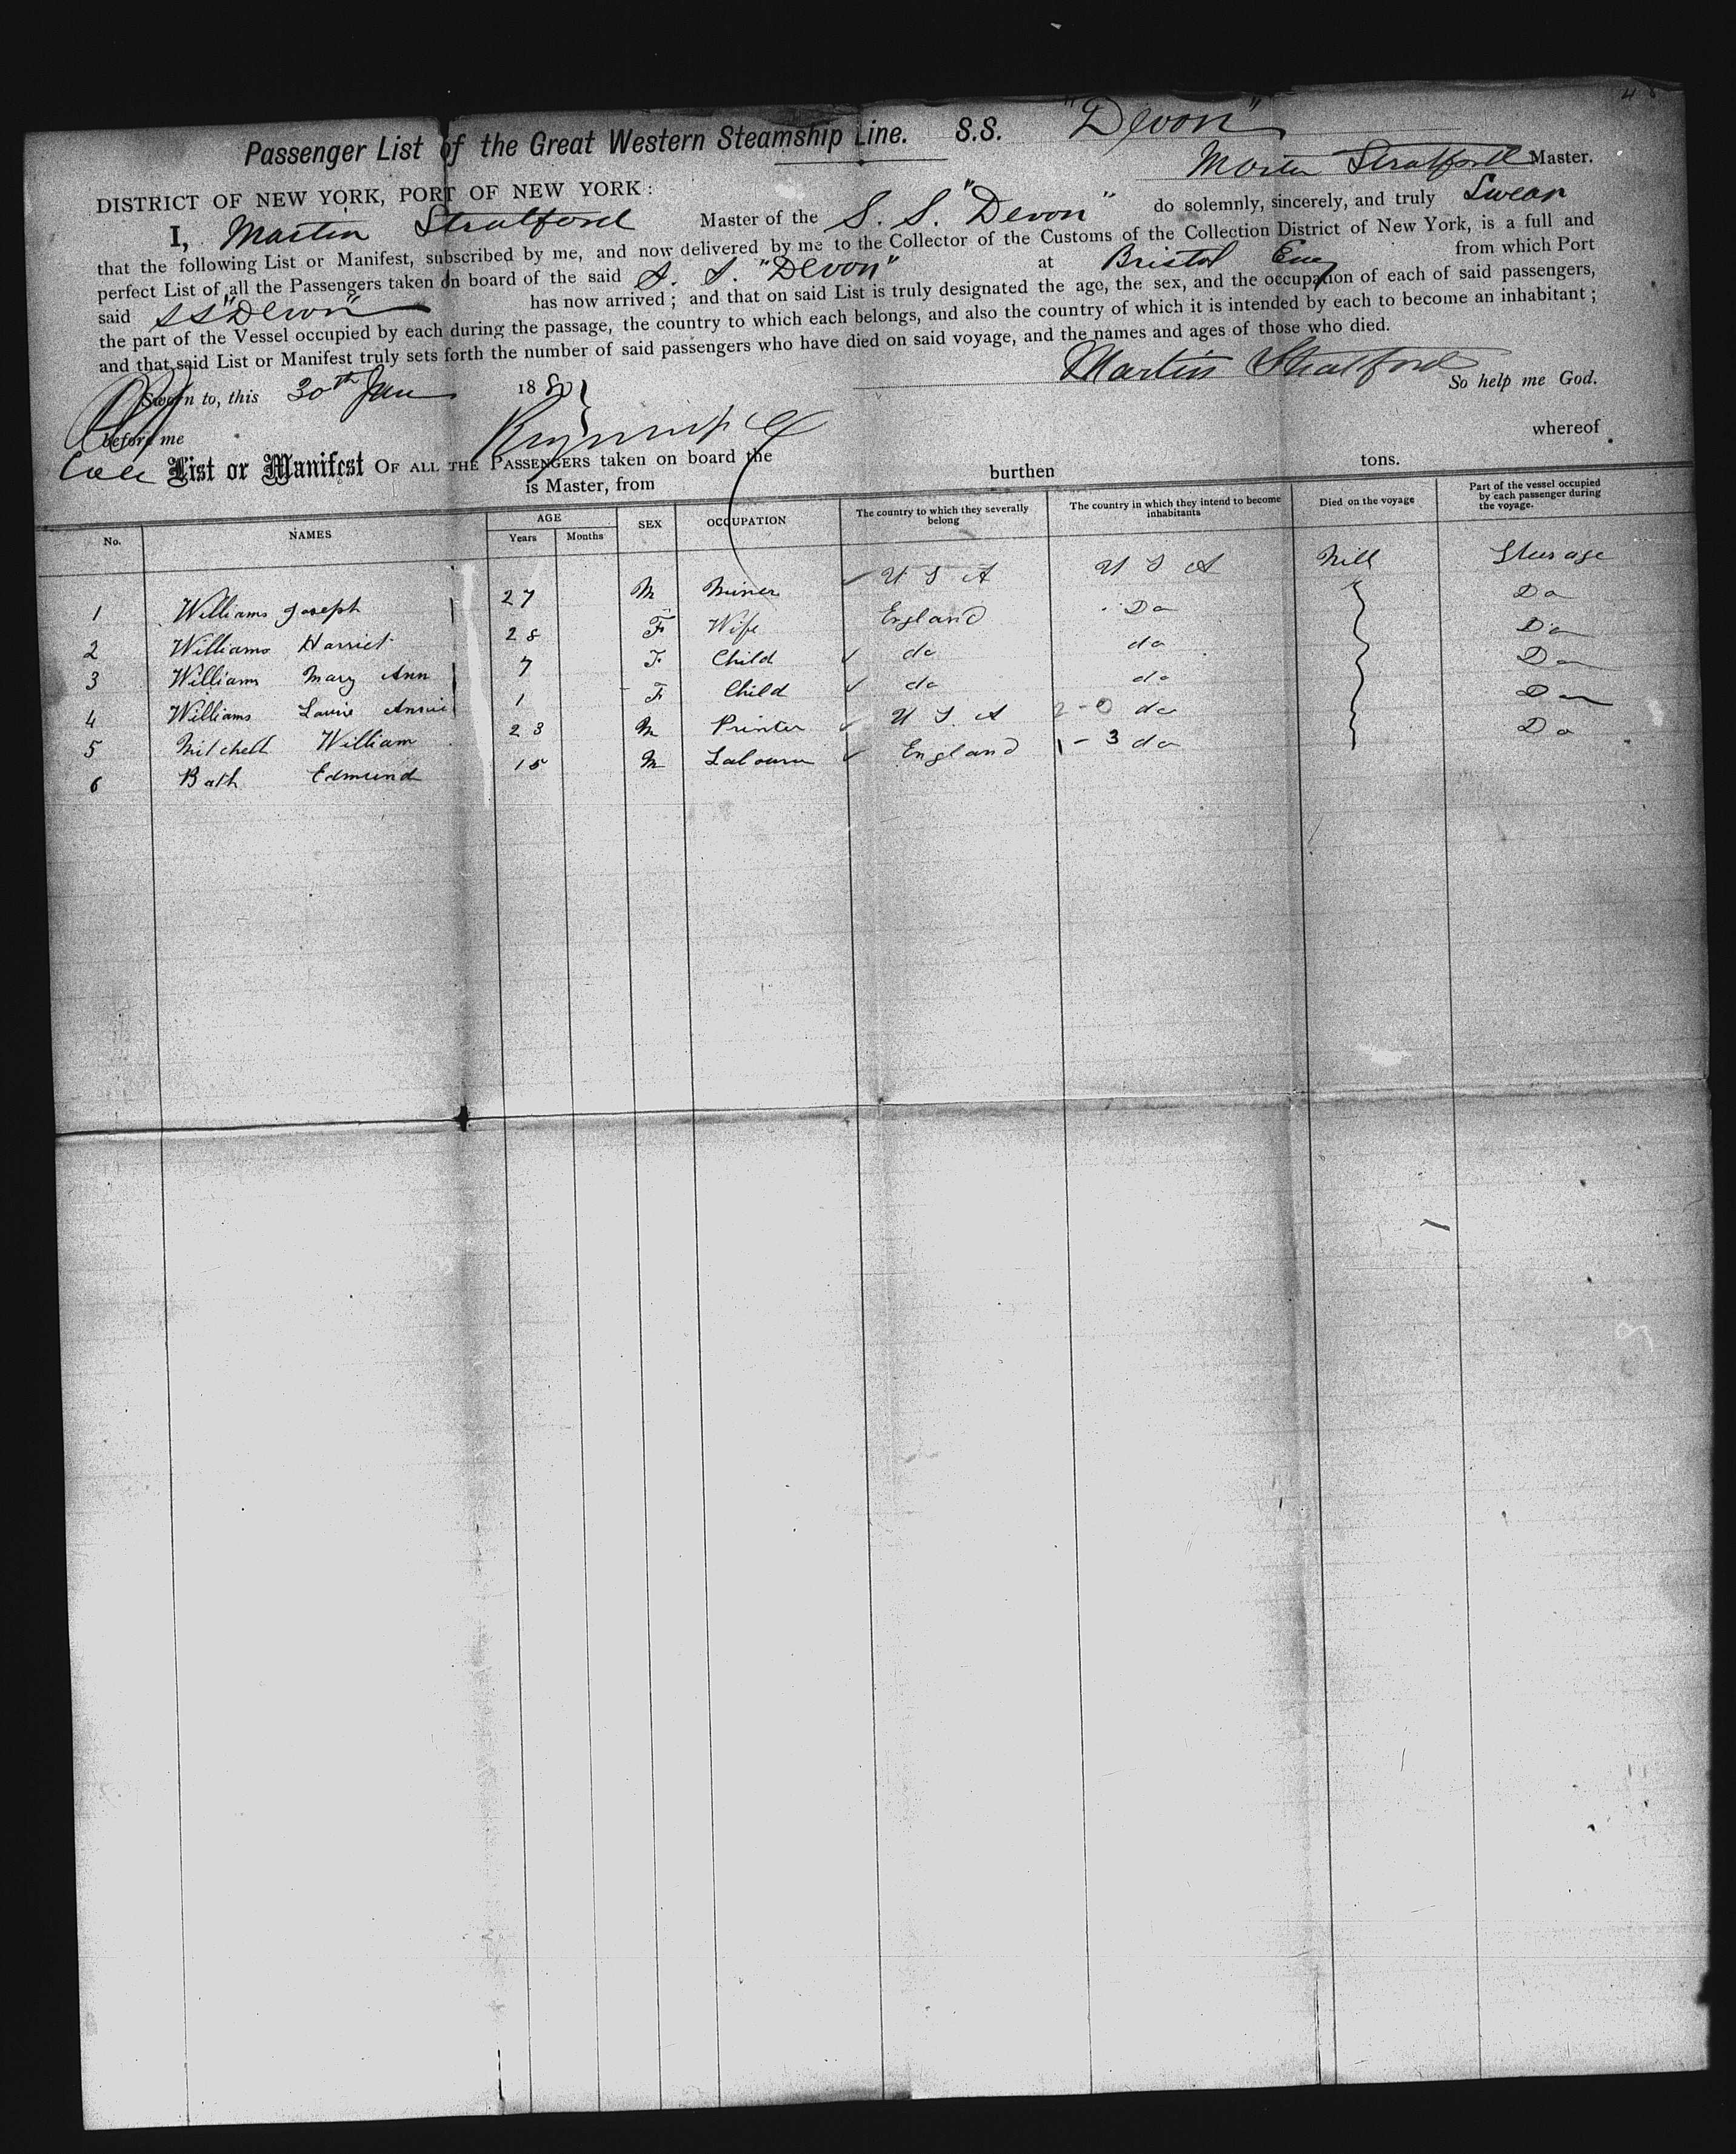 Passenger List of the Great Western Steamship Line. S.S. "Devon"
Martin Stratford Master.
DISTRICT OF NEW YORK, PORT OF NEW YORK:
I, Martin Stratford Master of the S. S. "Devon" do solemnly, sincerely, and truly Swear
that the following List or Manifest, subscribed by me, and now delivered by me to the Collector of the Customs of the Collection District of New York, is a full and
perfect List of all the Passengers taken on board of the said S. S. "Devon" at Bristol Eng from which Port
said SS "Devon" has now arrived; and that on said List is truly designated the age, the sex, and the occupation of each of said passengers,
the part of the Vessel occupied by each during the passage, the country to which each belongs, and also the country of which it is intended by each to become an inhabitant;
and that said List or Manifest truly sets forth the number of said passengers who have died on said voyage, and the names and ages of those who died.
Martin Stratford So help me God.
Sworn to, this 30th Jan 1880
before me
List or Manifest OF ALL THE PASSENGERS taken on board the whereof
is Master, from burthen tons.
No. NAMES AGE Years Months SEX OCCUPATION The country to which they severally belong The country in which they intend to become inhabitants Died on the voyage Part of the vessel occupied by each passenger during the voyage.
1 Williams Joseph 27 M Miner U S A U S A Nill Steerage
2 Williams Harriet 28 F Wife England Do Do
3 Williams Mary Ann 7 F Child do do Do
4 Williams Annie 1 F Child do do Do
5 Mitchell William 23 M Printer U S. A 2-0 do Do
6 Bath Edmund 15 M Labourer England 1-3 do Do